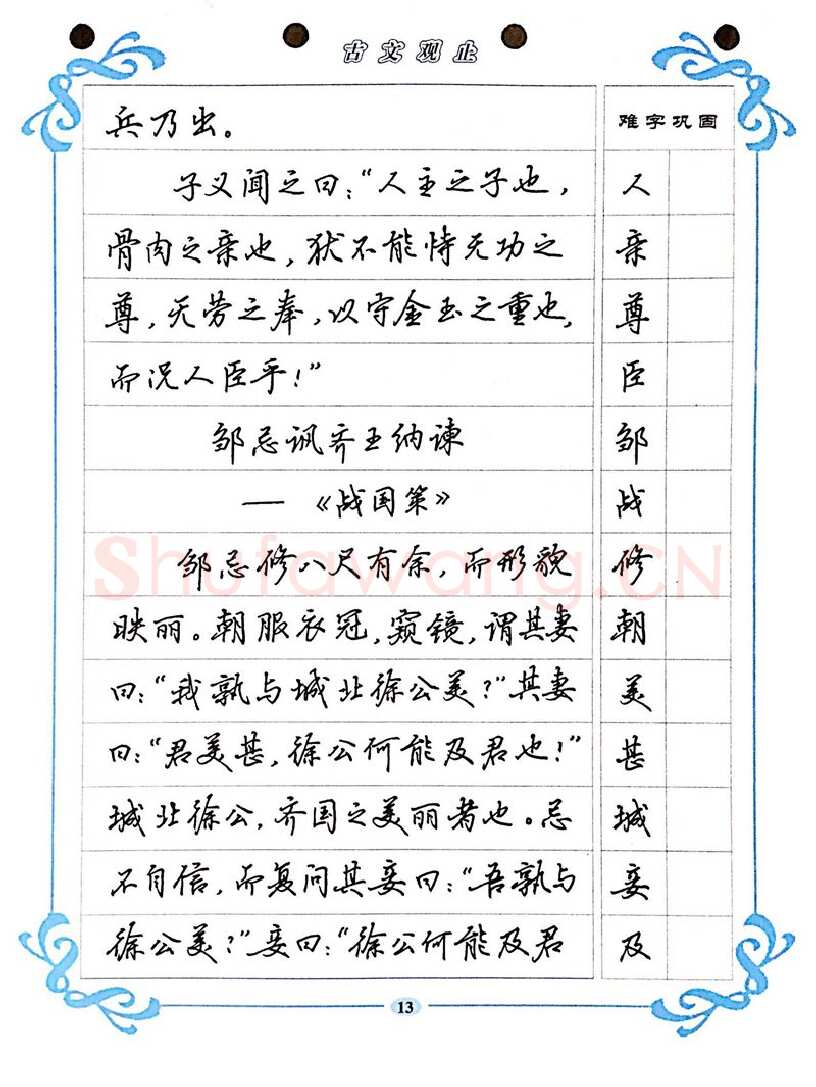 古文观止
兵乃出。
难字巩固
子义闻之曰：“人主之子也，
人
骨肉之亲也，犹不能恃无功之
亲
尊，无劳之奉，以守金玉之重也，
尊
而况人臣乎！”
臣
邹忌讽齐王纳谏
邹
—《战国策》
战
邹忌修八尺有余，而形貌
修
Shufawang.CN
映丽。朝服衣冠，窥镜，谓其妻
朝
曰：“我孰与城北徐公美？”其妻
美
曰：“君美甚，徐公何能及君也！”
甚
城北徐公，齐国之美丽者也。忌
城
不自信，而复问其妾曰：“吾孰与
妾
徐公美？”妾曰：“徐公何能及君
及
13